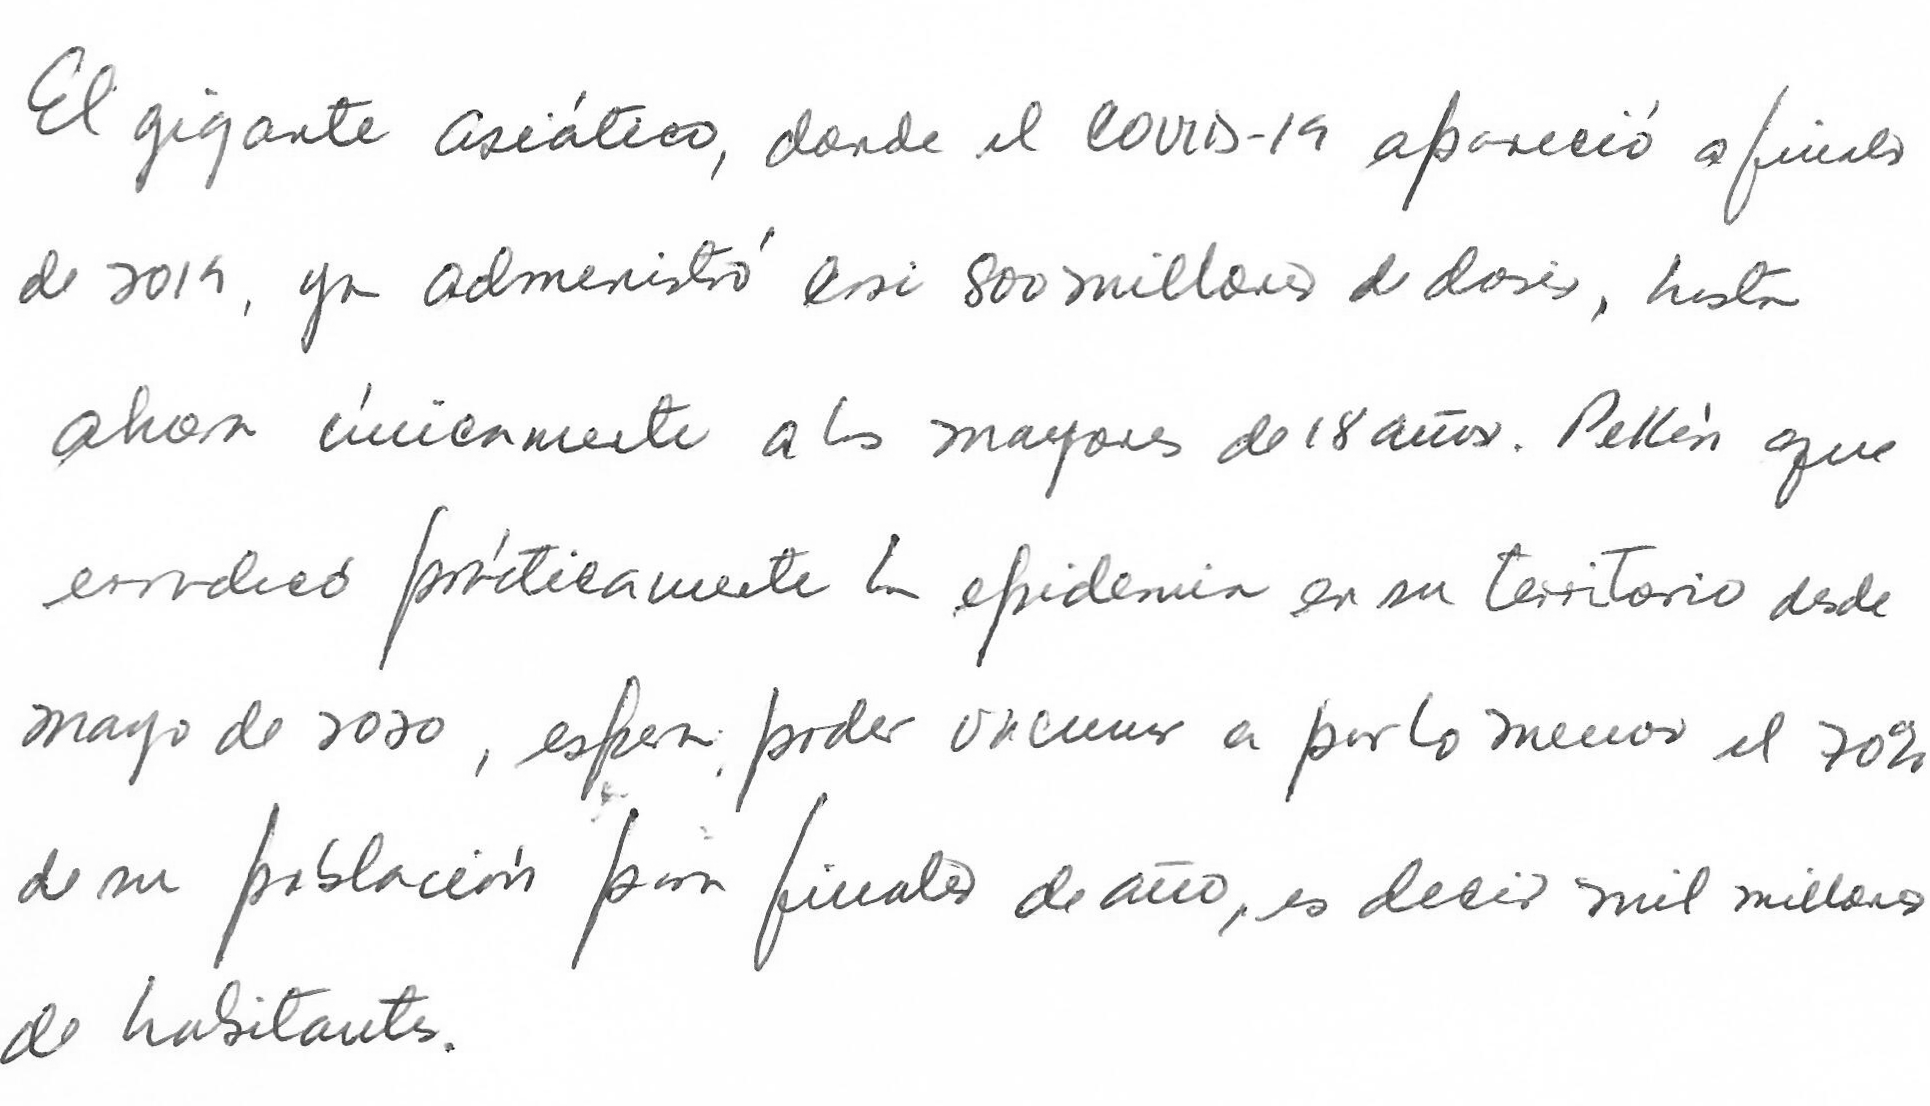 El gigante asiático, donde el COVID-19 apareció a finales
de 2019, ya administró casi 800 millones de dosis, hasta
ahora únicamente a los mayores de 18 años. Pekín que
erradicó prácticamente la epidemia en su territorio desde
mayo de 2020, espera, poder vacunar a por lo menos el 70%
de su población para finales de año, es decir mil millones
de habitantes.